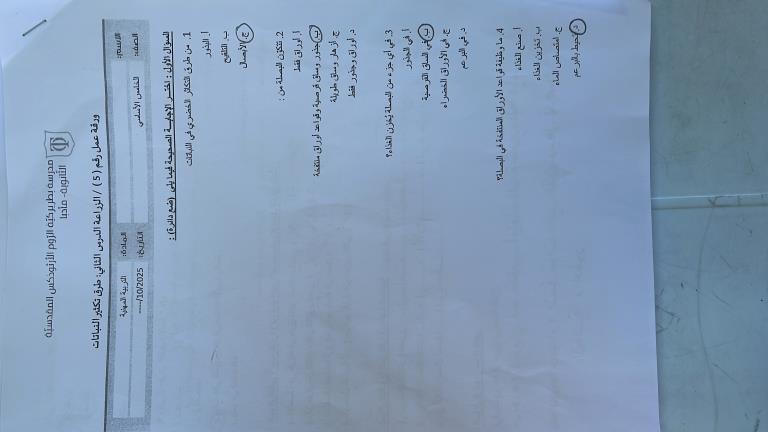 مدرسة بطريركية الروم الأرثوذكس المقدسية
الثانوية- مأدبا
ورقة عمل رقم ( 5 ) / الزراعة الدرس الثاني: طرق تكثير النباتات
الاسم: التاريخ: ----/10/2025
الصف: الخامس الأساسي المادة: التربية المهنية
السؤال الأول : اختر الإجابة الصحيحة فيما يلي (ضع دائرة) :
1. من طرق التكاثر الخضري في النباتات
أ. البذور
ب. التلقيح
ج. الأبصال
2. تتكون البصلة من :
أ. أوراق فقط
ب. جذور وساق قرصية وقواعد أوراق منتفخة
ج. أزهار وساق طويلة
د. أوراق وجذور فقط
3. في أي جزء من البصلة يُخزن الغذاء؟
أ. في الجذور
ب. في الساق القرصية
ج. في الأوراق الخضراء
د. في البرعم
4. ما وظيفة قواعد الأوراق المنتفخة في البصلة؟
أ. صنع الغذاء
ب. تخزين الغذاء
ج. امتصاص الماء
د. تحيط بالبرعم